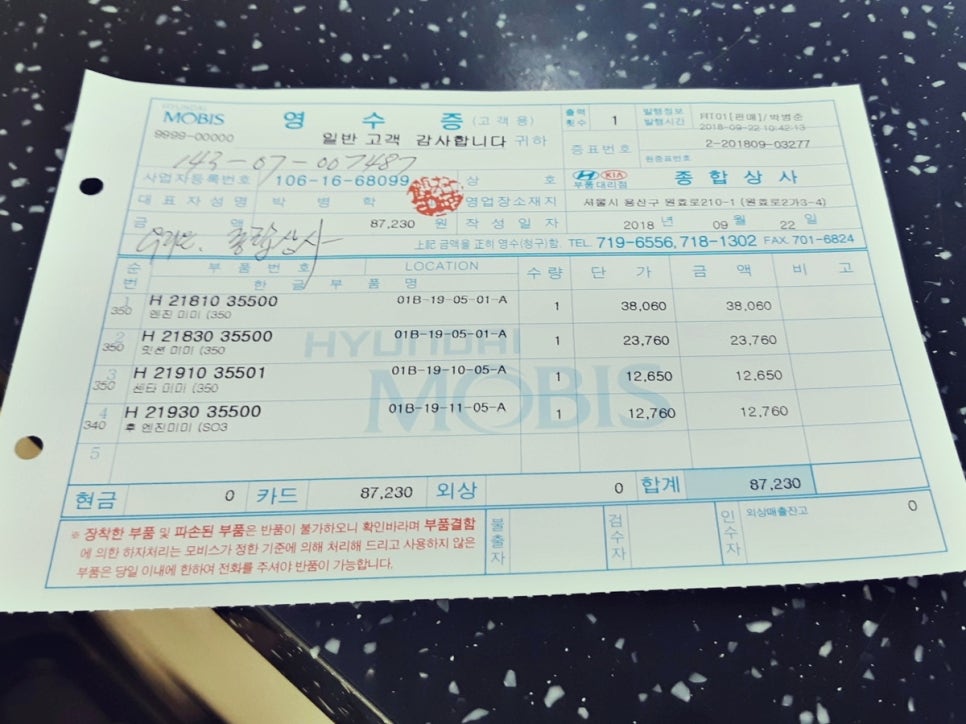 HYUNDAI
MOBIS
영 수 증 (고객용)
출력 횟수 1
발행정보 HT01[판매]/박병준
발행시간 2018-09-22 10:42:13
9999-00000
일반 고객 감사합니다 귀하
증표번호 2-201809-03277
원증표번호
143-07-007487
사업자등록번호 106-16-68099
상 호 부품대리점 종합상사
KIA
대표자성명 박 병 학
영업장소재지 서울시 용산구 원효로210-1 (원효로2가3-4)
금 액 87,230 원
작성일자 2018 년 09 월 22 일
종합상사
上記 금액을 正히 영수(청구)함. TEL. 719-6556, 718-1302 FAX. 701-6824
순번 부 품 번 호 LOCATION 수 량 단 가 금 액 비 고
한 글 부 품 명
1 H 21810 35500 01B-19-05-01-A 1 38,060 38,060
350 엔진 미미 (350
2 H 21830 35500 01B-19-05-01-A 1 23,760 23,760
350 밋션 미미 (350
3 H 21910 35501 01B-19-10-05-A 1 12,650 12,650
350 센타 미미 (350
4 H 21930 35500 01B-19-11-05-A 1 12,760 12,760
340 후 엔진미미 (SO3
5
HYUNDAI
MOBIS
현금 0 카드 87,230 외상 0 합계 87,230
※ 장착한 부품 및 파손된 부품은 반품이 불가하오니 확인바라며 부품결함
에 의한 하자처리는 모비스가 정한 기준에 의해 처리해 드리고 사용하지 않은
부품은 당일 이내에 한하여 전화를 주셔야 반품이 가능합니다.
불출자
검수자
인수자
외상매출잔고 0